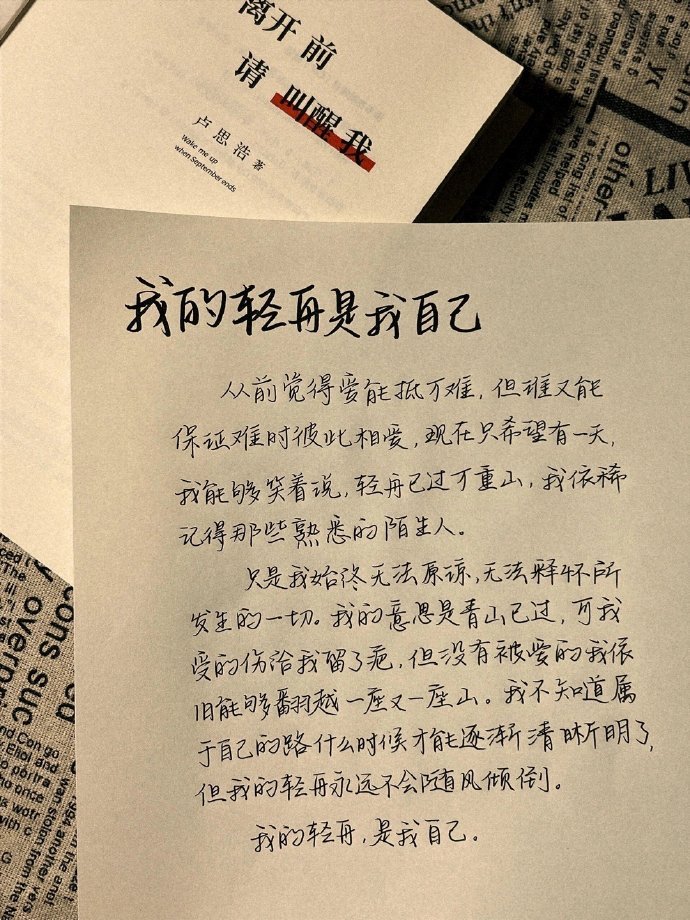 离开前
请 叫醒我
卢思浩 著
Wake me up
when September ends
我的轻舟是我自己
从前觉得爱能抵万难，但谁又能
保证难时彼此相爱，现在只希望有一天，
我能够笑着说，轻舟已过万重山，我依稀
记得那些熟悉的陌生人。
只是我始终无法原谅，无法释怀所
发生的一切。我的意思是青山已过，可我
受的伤给我留了疤，但没有被爱的我依
旧能够翻越一座又一座山。我不知道属
于自己的路什么时候才能逐渐清晰明了，
但我的轻舟永远不会随风倾倒。
我的轻舟，是我自己。
other-
LIV
cons suc
overpri